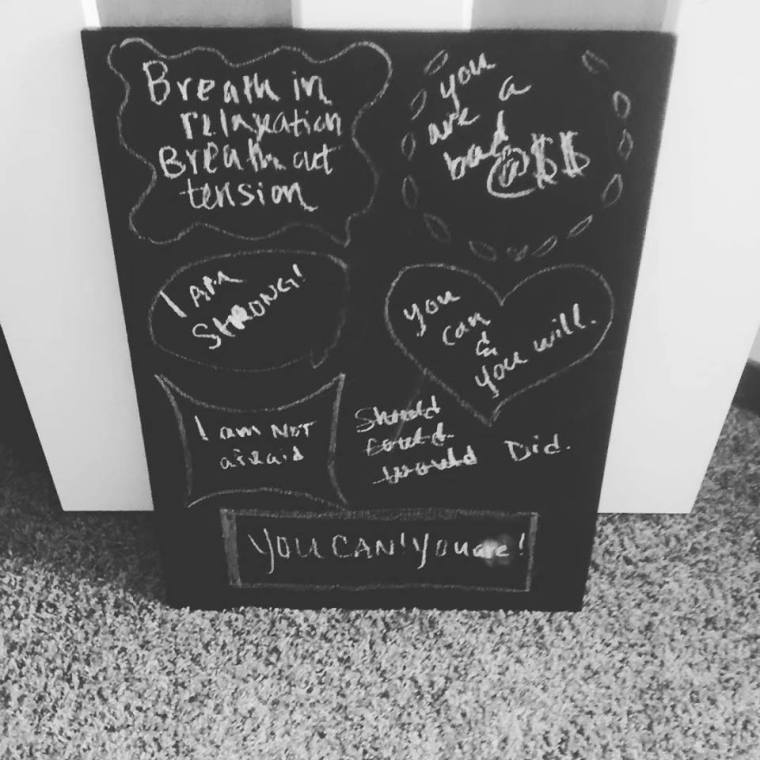 Breath in
relaxation
Breath out
tension
you
are a
bad
@$$
I AM
STRONG!
you
can
&
you will.
I am NOT
afraid
Should
Could
would Did.
YOU CAN! You are!